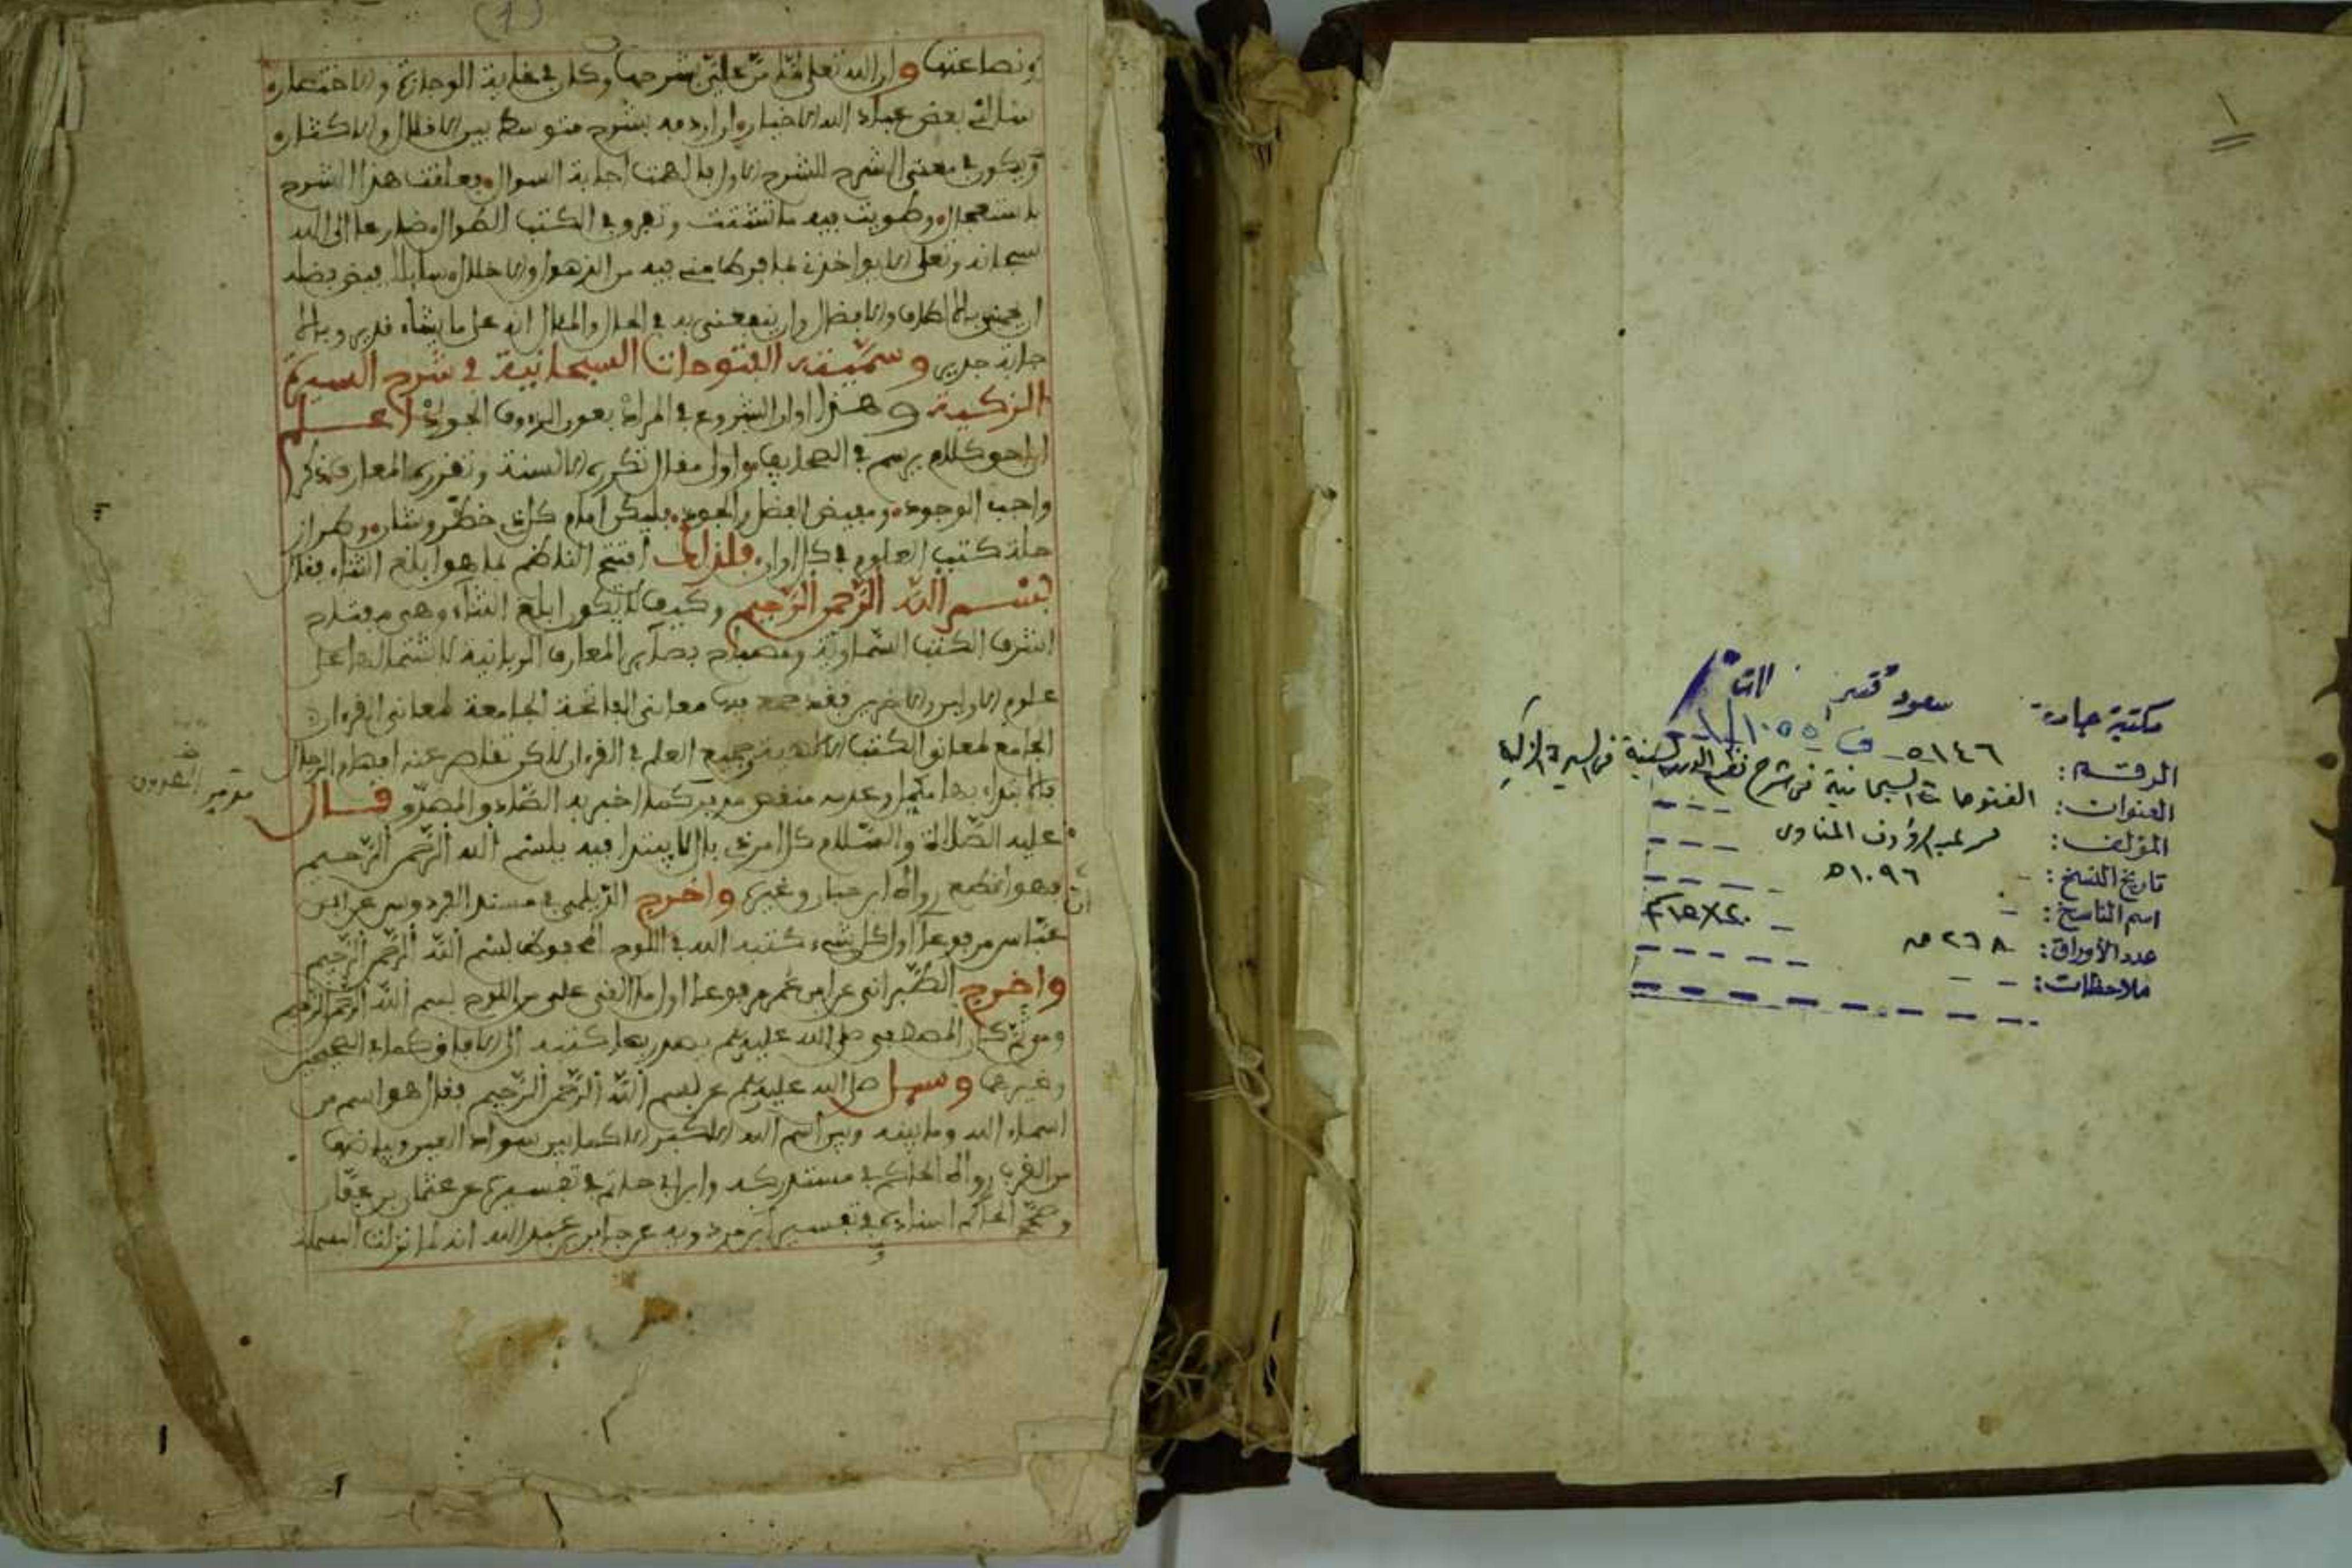 ١
مكتبة جامعة سعود قسم
الرقم: ٥١٤٦ ف ١٠٥٥/١
العنوان: الفتوحات السبحانية في شرح نظم الدرر السنية في السيرة الزكية
المؤلف: عبدالرؤوف المناوي
تاريخ النسخ: ١٠٩٦ه
اسم الناسخ: -
عدد الأوراق: ٢٦٨ ٢٠×١٥
ملاحظات: - -
(1)
ونصاعتها وان الله تعلى من علي بشرحها وكان في غاية الوجازة والاختصار
سالني بعض عباد الله الاخيار ان اردفه بشرح متوسط بين الاقلال والاكثار
ويكون في معنى الشرح للشرح الاول بالهمت اجابة السوال فعلقت هذا الشرح
باستعجال وطويت فيه ما تشتت وتفرق في الكتب الطوال ضارعا الى الله
سبحانه وتعلى الا يواخذني بما فرط مني فيه من الذهول والاخلال سايلا فيض فضله
وان ينفعني به في الحال والمئال انه على ما يشاء قدير وبالا
جابة جدير وسميته الفتوحات السبحانية في شرح السيرة
الزكية وهذا اوان الشروع في المراد بعون الرءوف الجواد اعلم
ان احق كلام يرسم في الصحايف واول مقال تكرره الالسنة وتقرره المعارف ذكر
واجب الوجود ومفيض الفضل والجود فليكن امام كل خطر وشان وطراز
حلة كتب العلوم في كل اوان فلذلك افتتح الناظم بما هو ابلغ الثناء فقال
بسم الله الرحمن الرحيم وكيف لا يكون ابلغ الثناء وهي مفتاح
اشرف الكتب السماوية ومصباح بصاير المعارف الربانية لاشتمالها على
علوم الاولين والاخرين فقد جمع فيها معاني الفاتحة الجامعة لمعاني القرءان
الجامع لمعاني الكتب الالهية وجميع العلم في القرءان لاكن تقاصر عنه افهام الرجال
فالابتداء بها متكمل وعدمه منقص مدبر كما اخبر به الصادق المصدوق قال
عليه الصلاة والسلام كل امر ذي بال لا يبتدا فيه ببسم الله الرحمن الرحيم
فهو اقطع رواه ابن حبان وغيره واخرج الديلمي في مسند الفردوس عن ابن
عباس مرفوعا اول كل شيء كتبه الله في اللوح المحفوظ بسم الله الرحمن الرحيم
واخرج الطبراني عن ابن عمر مرفوعا اول ما القي علي من اللوح بسم الله الرحمن الرحيم
ومن ثم كان المصطفى صلى الله عليه وسلم يصدر بها كتبه الى الافاق كما في الصحيحين
وغيرهما وسيل صلى الله عليه وسلم عن بسم الله الرحمن الرحيم فقال هو اسم من
اسماء الله وما بينه وبين اسم الله الاكبر الا كما بين سواد العين وبياضها
من القرب رواه الحاكم في مستدركه وابن ابي حاتم في تفسيره عن عثمان بن عفان
وصحح الحاكم اسناده وفي تفسير ابن مردويه عن جابر بن عبد الله انه لما نزلت البسملة